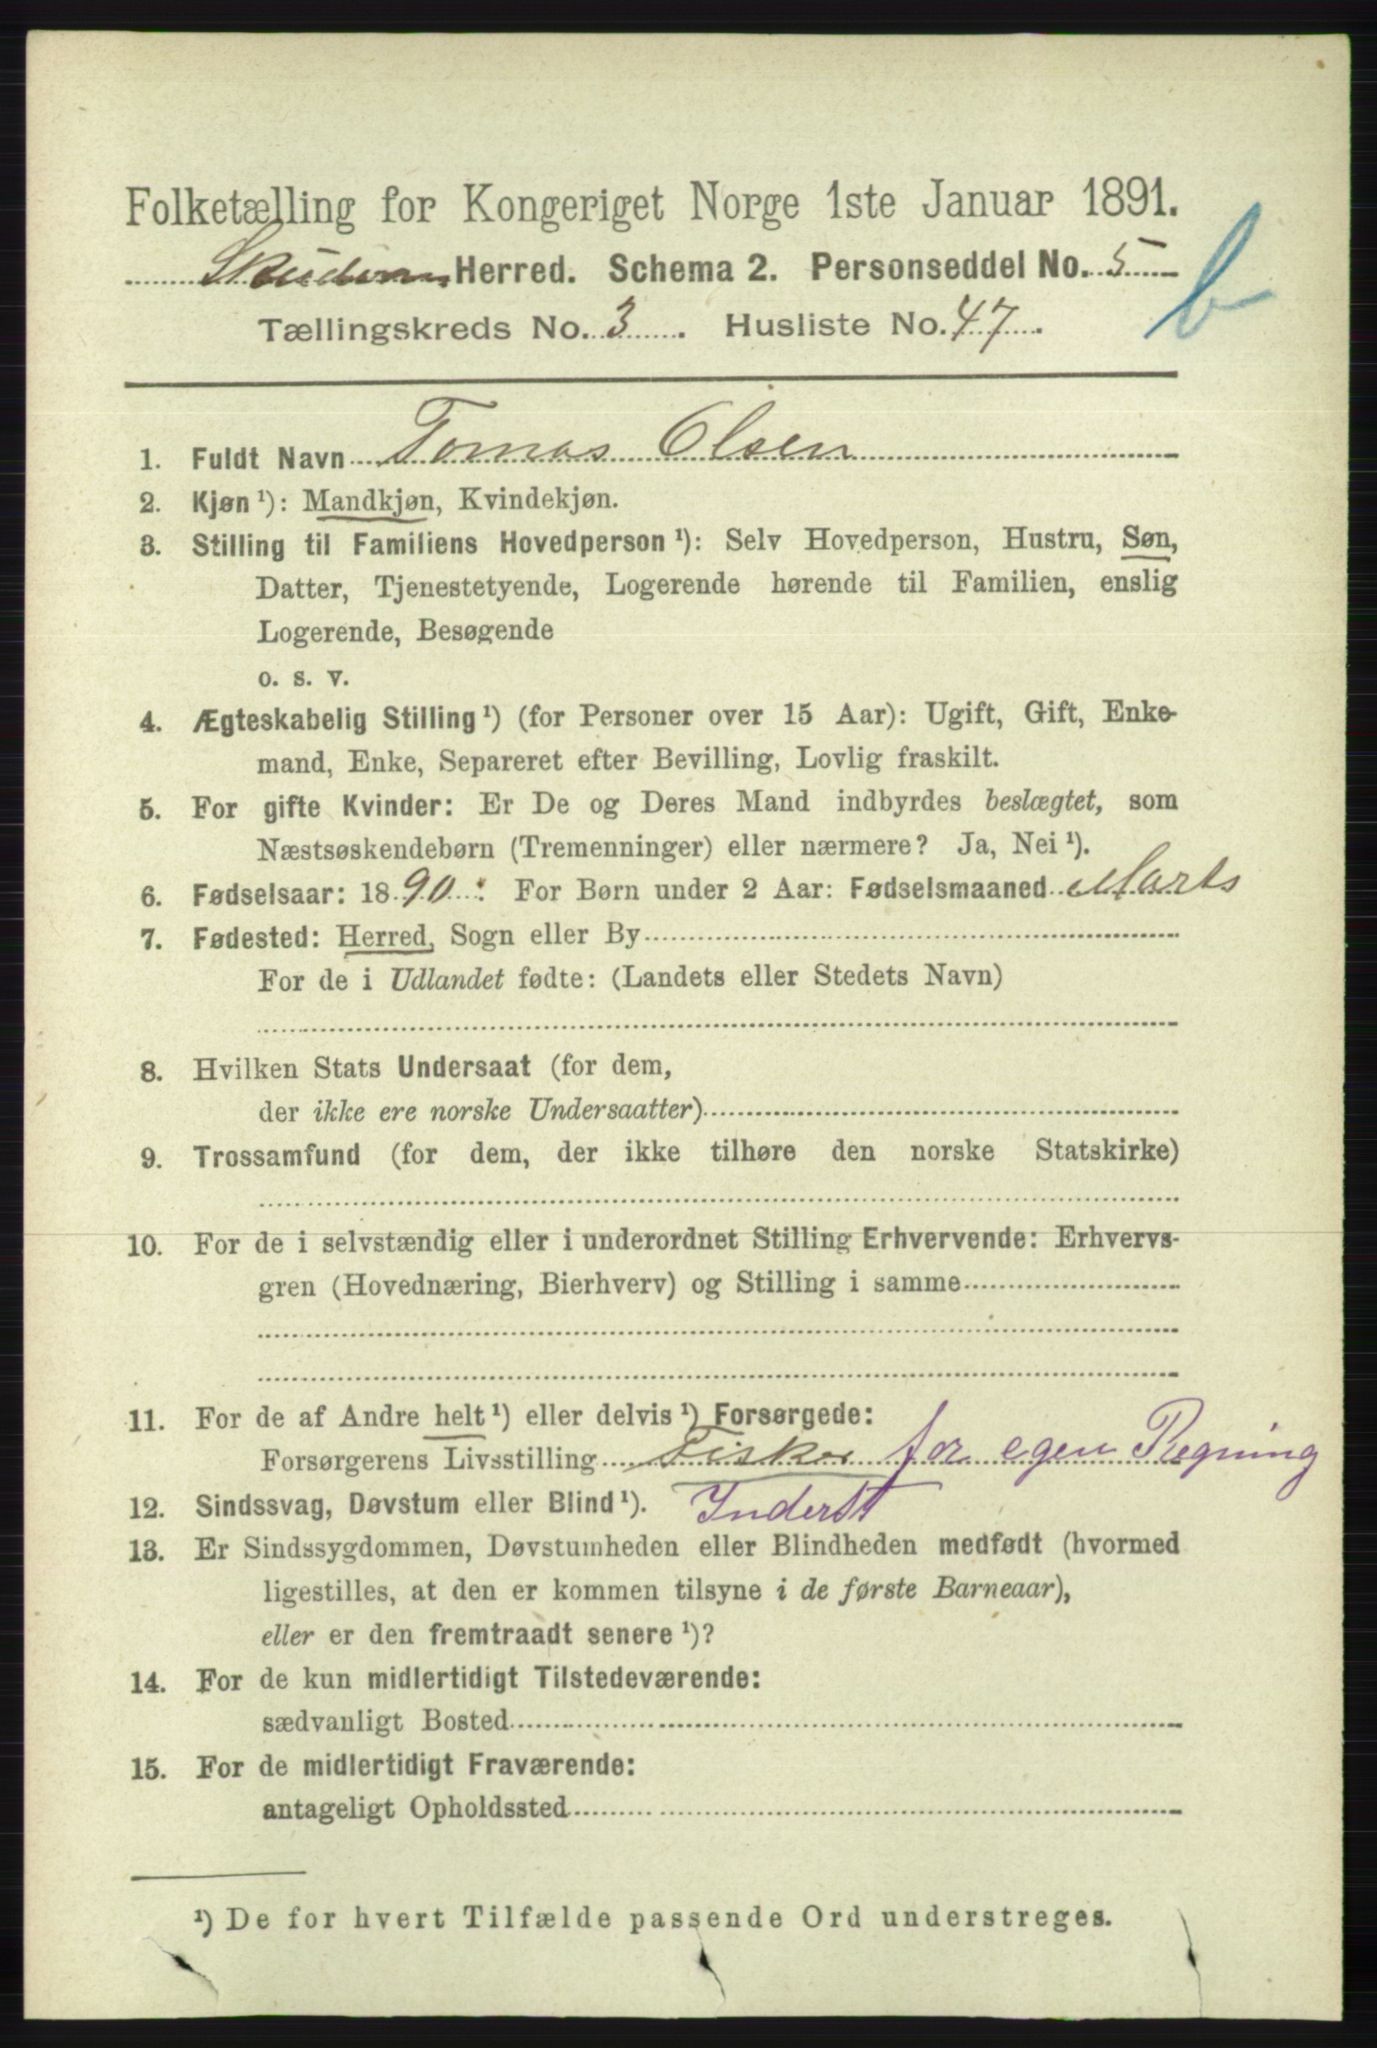 Folketælling for Kongeriget Norge 1ste Januar 1891.
Herred. Schema 2. Personseddel No. 5
Tællingskreds No. 3. Husliste No. 47.
b
1. Fuldt Navn Tomas Olsen
2. Kjøn ¹): Mandkjøn, Kvindekjøn.
3. Stilling til Familiens Hovedperson ¹): Selv Hovedperson, Hustru, Søn,
Datter, Tjenestetyende, Logerende hørende til Familien, enslig
Logerende, Besøgende
o. s. v.
4. Ægteskabelig Stilling ¹) (for Personer over 15 Aar): Ugift, Gift, Enke-
mand, Enke, Separeret efter Bevilling, Lovlig fraskilt.
5. For gifte Kvinder: Er De og Deres Mand indbyrdes beslægtet, som
Næstsøskendebørn (Tremenninger) eller nærmere? Ja, Nei ¹).
6. Fødselsaar: 1890: For Børn under 2 Aar: Fødselsmaaned Marts
7. Fødested: Herred, Sogn eller By
For de i Udlandet fødte: (Landets eller Stedets Navn)
8. Hvilken Stats Undersaat (for dem,
der ikke ere norske Undersaatter)
9. Trossamfund (for dem, der ikke tilhøre den norske Statskirke)
10. For de i selvstændig eller i underordnet Stilling Erhvervende: Erhvervs-
gren (Hovednæring, Bierhverv) og Stilling i samme
11. For de af Andre helt ¹) eller delvis ¹) Forsørgede:
Forsørgerens Livsstilling Fisker for egen Regning
12. Sindssvag, Døvstum eller Blind ¹). Inderst
13. Er Sindssygdommen, Døvstumheden eller Blindheden medfødt (hvormed
ligestilles, at den er kommen tilsyne i de første Barneaar),
eller er den fremtraadt senere ¹)?
14. For de kun midlertidigt Tilstedeværende:
sædvanligt Bosted
15. For de midlertidigt Fraværende:
antageligt Opholdssted
¹) De for hvert Tilfælde passende Ord understreges.